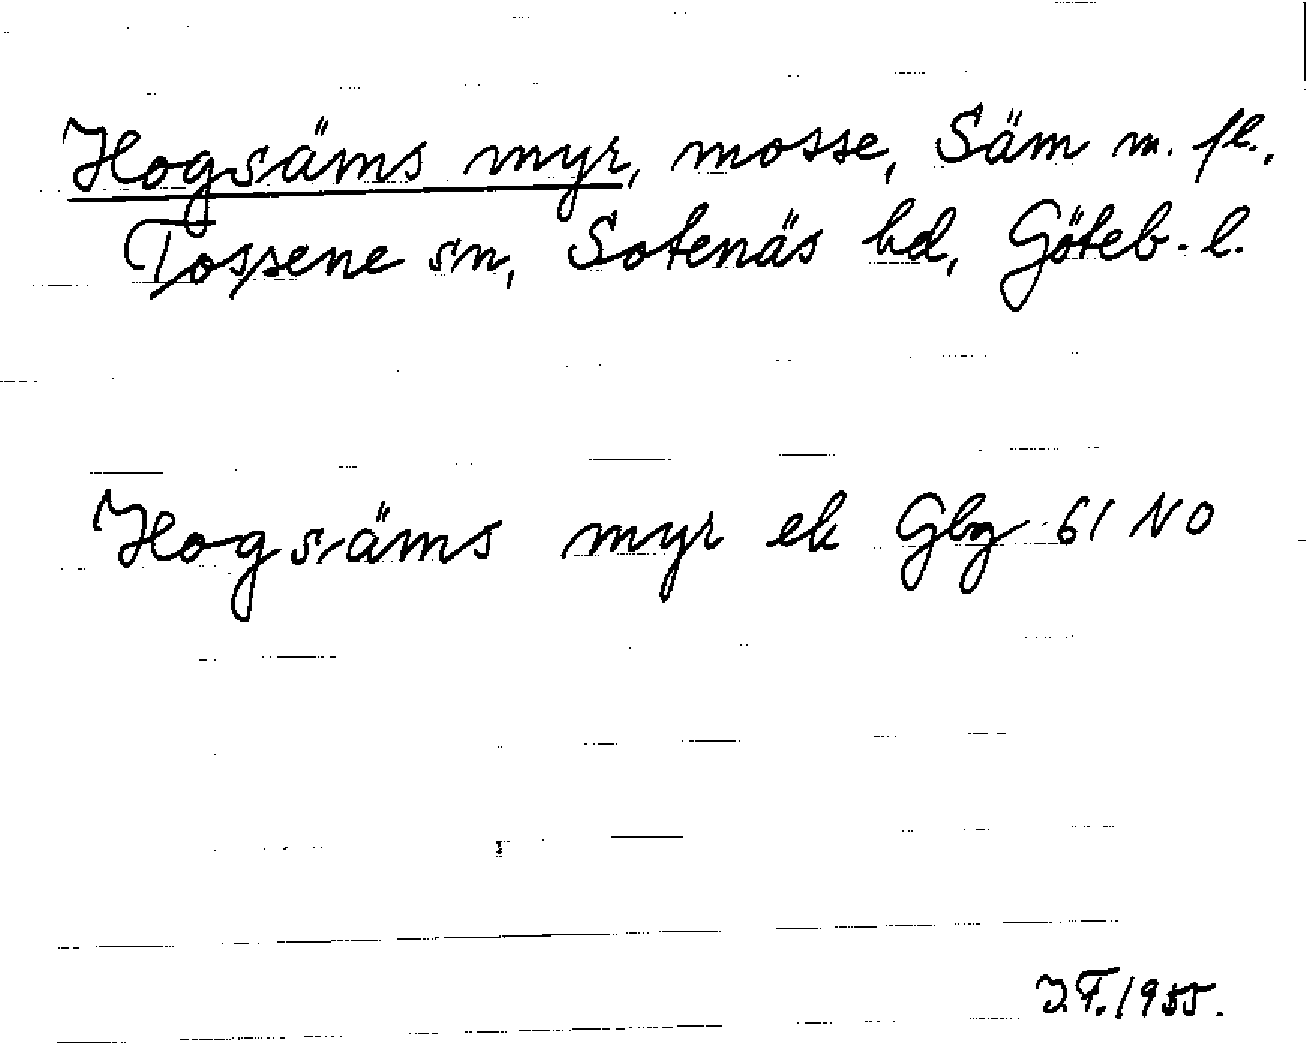 Hogsäms myr, mosse, Säm m. fl.,
Tossene sn, Sotenäs hd, Göteb. l.
Hogsäms myr ek Gbg 61 NO
I.F. 1955.